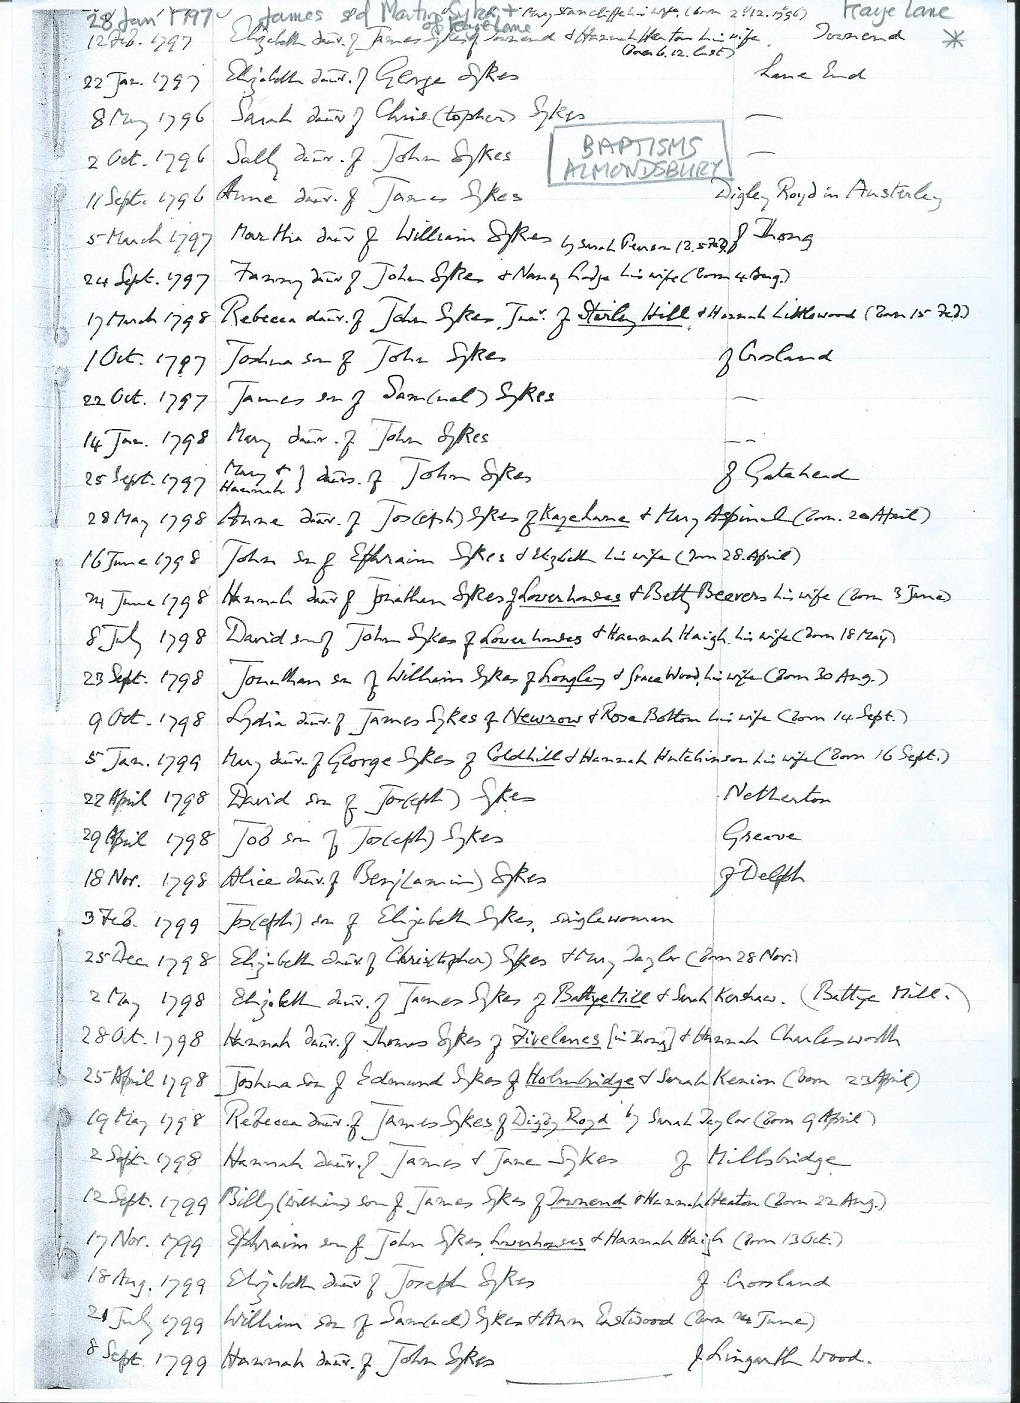 28 Jan 1797 James s of Martin Sykes + Mary his wife (born 21.12.1796) Kaye Lane
of Kaye Lane
12 Feb. 1797 Elizabeth daur. of James Sykes of Townend & Hannah Heaton his wife Townend *
(born 6.12. last)
22 Jan. 1797 Elizabeth daur. of George Sykes Lane End
8 May 1796 Sarah daur of Chris(topher) Sykes —
BAPTISMS
ALMONDSBURY
2 Oct. 1796 Sally daur. of John Sykes —
11 Sept. 1796 Anne daur. of James Sykes Digley Royd in Austerley
5 March 1797 Martha daur of William Sykes by Sarah of Thong
24 Sept. 1797 Fanny daur of John Sykes & Nancy Lodge his wife (born 4 Aug.)
17 March 1798 Rebecca daur. of John Sykes, Junr. of Stirley Hill & Hannah Littlewood (born 15 Feb.)
1 Oct. 1797 Joshua son of John Sykes of Crosland
22 Oct. 1797 James son of Sam(uel) Sykes —
14 Jan. 1798 Mary daur. of John Sykes --
25 Sept. 1797 Mary + Hannah } daurs. of John Sykes of Gatehead
28 May 1798 Anne daur. of Jos(eph) Sykes of Kaye Lane & Mary Aspinal (born. 20 April)
16 June 1798 John son of Ephraim Sykes & Elizabeth his wife (born 28. April)
24 June 1798 Hannah daur of Jonathan Sykes of Lowerhouses & Betty Beevers his wife (born 3 June)
8 July 1798 David son of John Sykes of Lowerhouses & Hannah Haigh his wife (born 18 May)
23 Sept. 1798 Jonathan son of William Sykes of Longley & Grace Wood, his wife (born 30 Aug.)
9 Oct. 1798 Lydia daur. of James Sykes of Newrow & Rose Bottom his wife (born 14 Sept.)
5 Jan. 1799 Mary daur. of George Sykes of Coldhill & Hannah Hutchinson his wife (born 16 Sept.)
22 April 1798 David son of Jos(eph) Sykes Netherton
29 April 1798 Job son of Jos(eph) Sykes Greave
18 Nov. 1798 Alice daur. of Benj(amin) Sykes of Delph
3 Feb. 1799 Jos(eph) son of Elizabeth Sykes, singlewoman
25 Dec 1798 Elizabeth daur. of Chris(topher) Sykes & Mary Taylor (born 28 Nov.)
2 May 1798 Elizabeth daur. of James Sykes of Battye Mill & Sarah Kershaw. (Battye Mill.)
28 Oct. 1798 Hannah daur. of Thomas Sykes of Fivelanes [in Thong] & Hannah Charlesworth
25 April 1798 Joshua son of Edmund Sykes of Holmbridge & Sarah Kenion (born 23 April)
19 May 1798 Rebecca daur. of James Sykes, of Digby Royd by Sarah Taylor (born 9 April)
2 Sept. 1798 Hannah daur. of James & Jane Sykes of Millsbridge
12 Sept. 1799 Billy (William) son of James Sykes of Townend & Hannah Heaton (born 22 Aug.)
17 Nov. 1799 Ephraim son of John Sykes, Lowerhouses & Hannah Haigh (born 13 Oct.)
18 Aug. 1799 Elizabeth daur of Joseph Sykes of Crosland
21 July 1799 William son of Sam(uel) Sykes & Ann Eastwood (born 24 June)
8 Sept. 1799 Hannah daur. of John Sykes of Lingarth Wood.